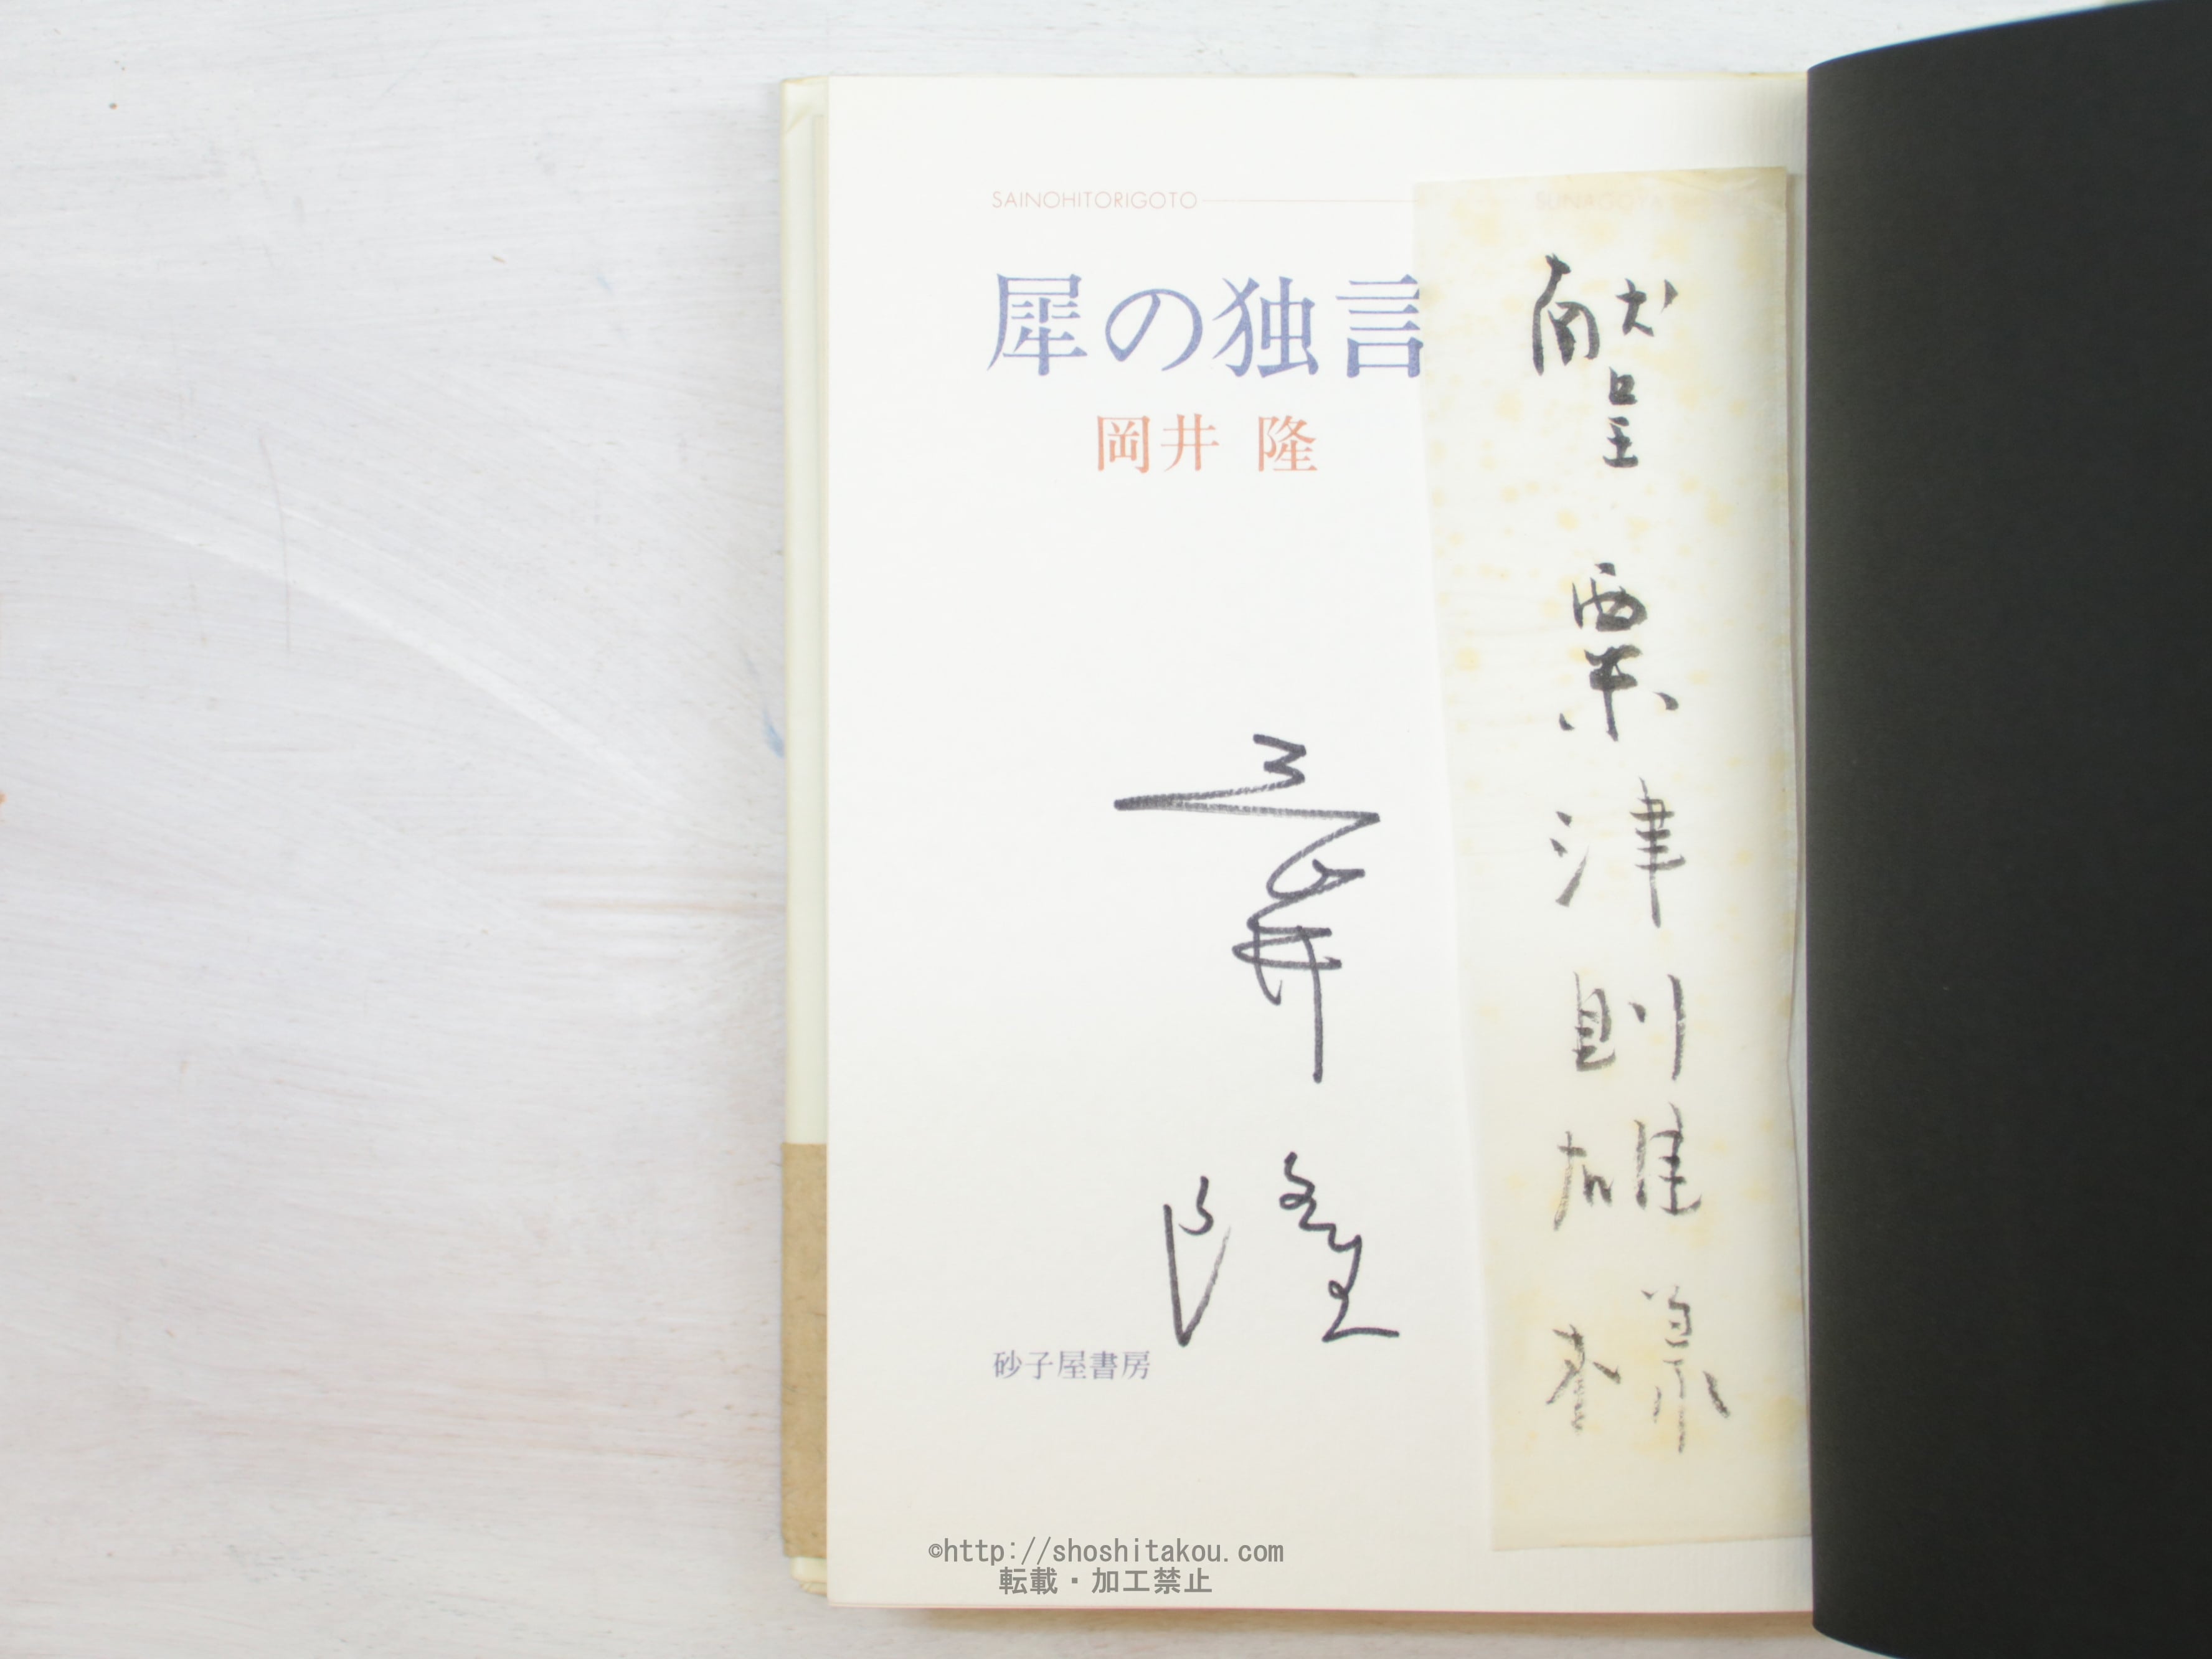 SAINOHITORIGOTO
SUNAGOYA
犀の独言
岡井 隆
献呈 粟津則雄様
岡井 隆
砂子屋書房
©http://shoshitakou.com
転載・加工禁止